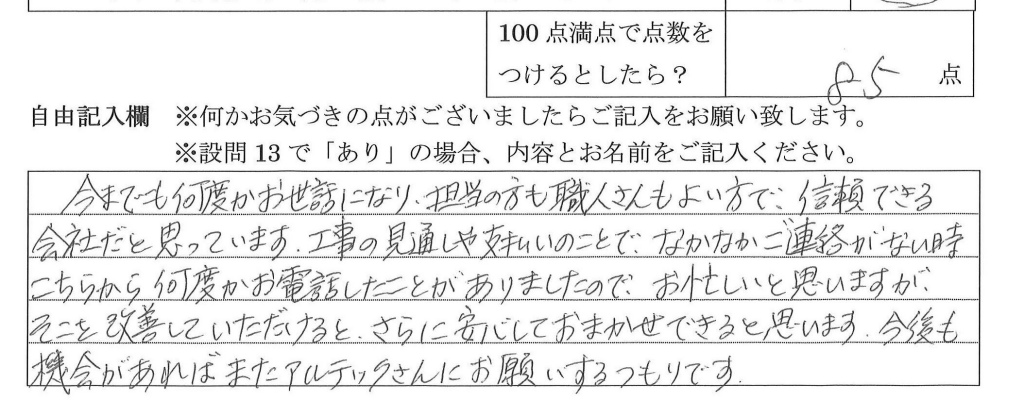 100点満点で点数を
つけるとしたら？
85 点
自由記入欄 ※何かお気づきの点がございましたらご記入をお願い致します。
※設問13で「あり」の場合、内容とお名前をご記入ください。
今までも何度かお世話になり、担当の方も職人さんもよい方で、信頼できる
会社だと思っています。工事の見通しや支払いのことで、なかなかご連絡がない時
こちらから何度かお電話したことがありましたので、お忙しいと思いますが、
そこを改善していただけると、さらに安心しておまかせできると思います。今後も
機会があればまたアルテックさんにお願いするつもりです。